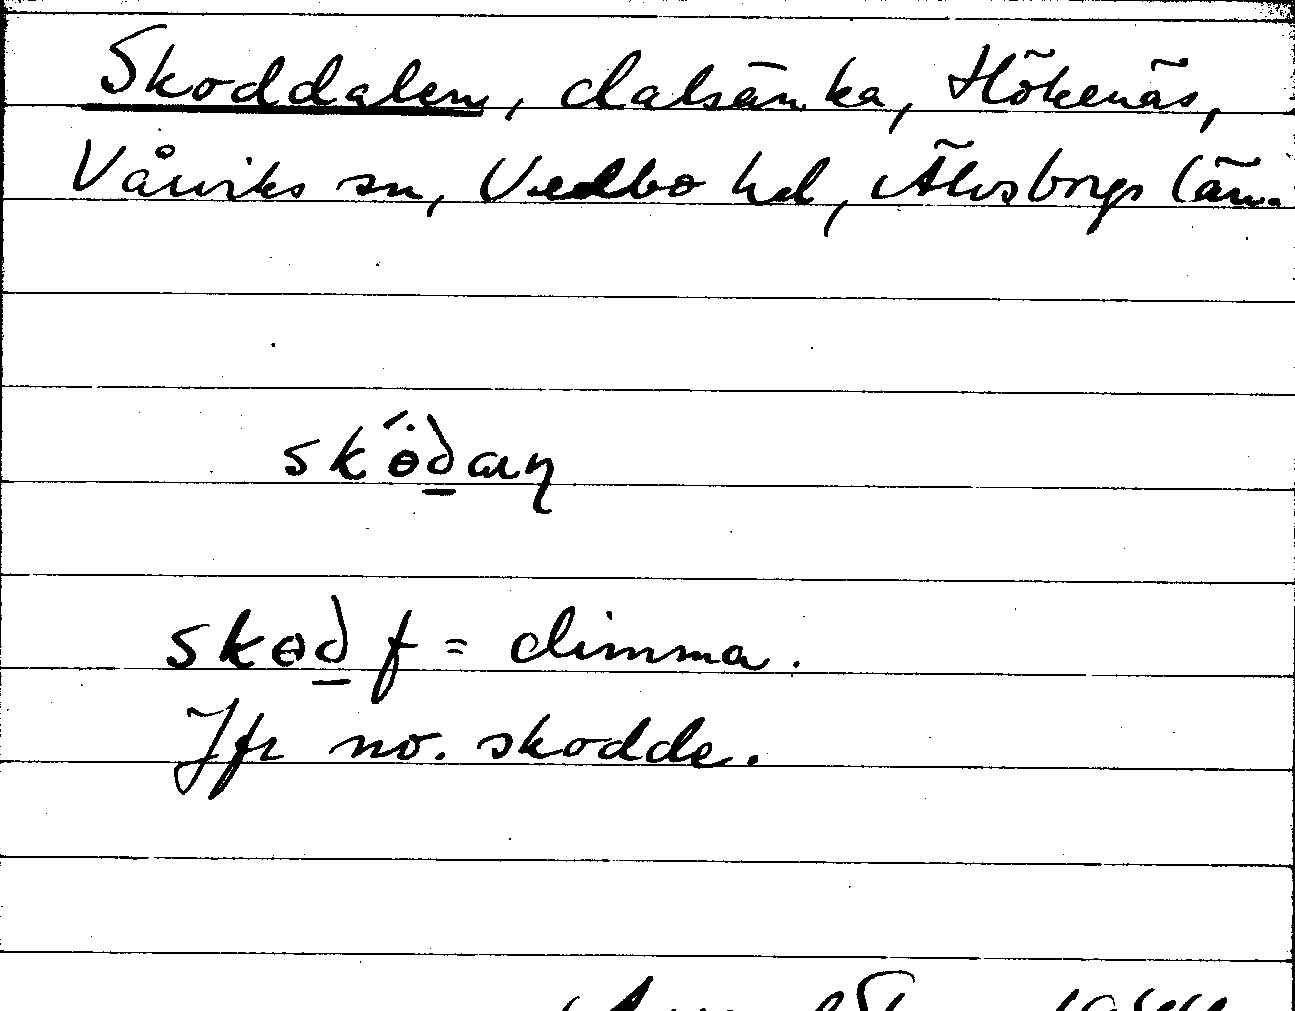 Skoddalen, dalsänka, Hökenäs,
Vårviks sn, Vedbo hd, Älvsborgs län.
skɵ̈́daŋ
skɵd f = dimma.
Jfr no. skodde.